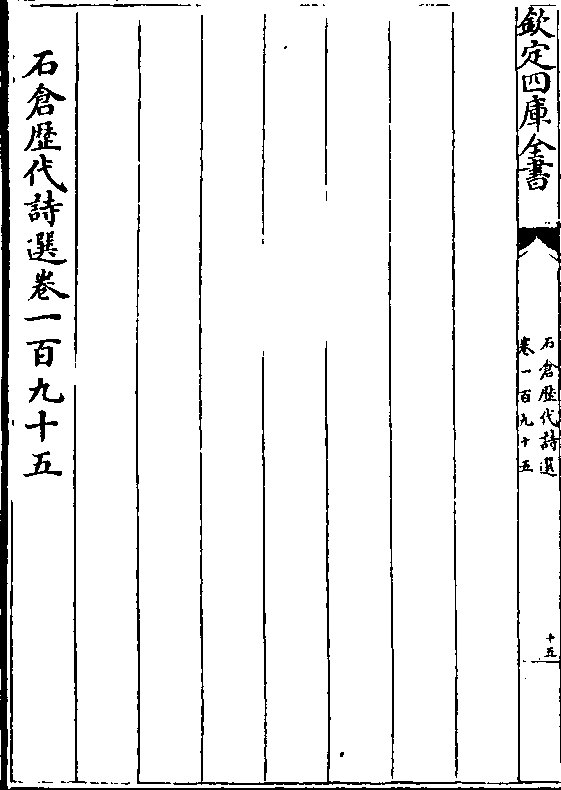 欽定四庫全書
石倉歴代詩選
卷一百九十五
十五
石倉歴代詩選卷一百九十五